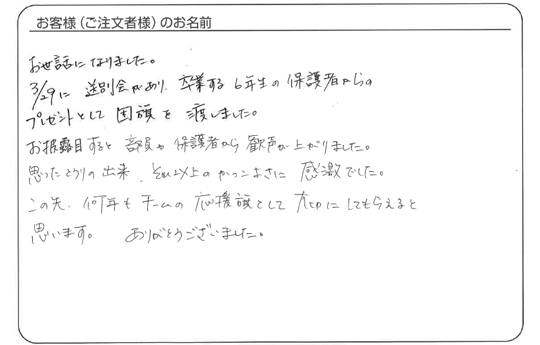 お客様(ご注文者様)のお名前
お世話になりました。
3/29に 送別会があり、卒業する6年生の保護者からの
プレゼントとして 団旗を 渡しました。
お披露目すると 部員や保護者から歓声が上がりました。
思ったとうりの出来、それ以上のかっこよさに 感激でした。
この先、何年もチームの応援旗として 大切にしてもらえると
思います。 ありがとうございました。